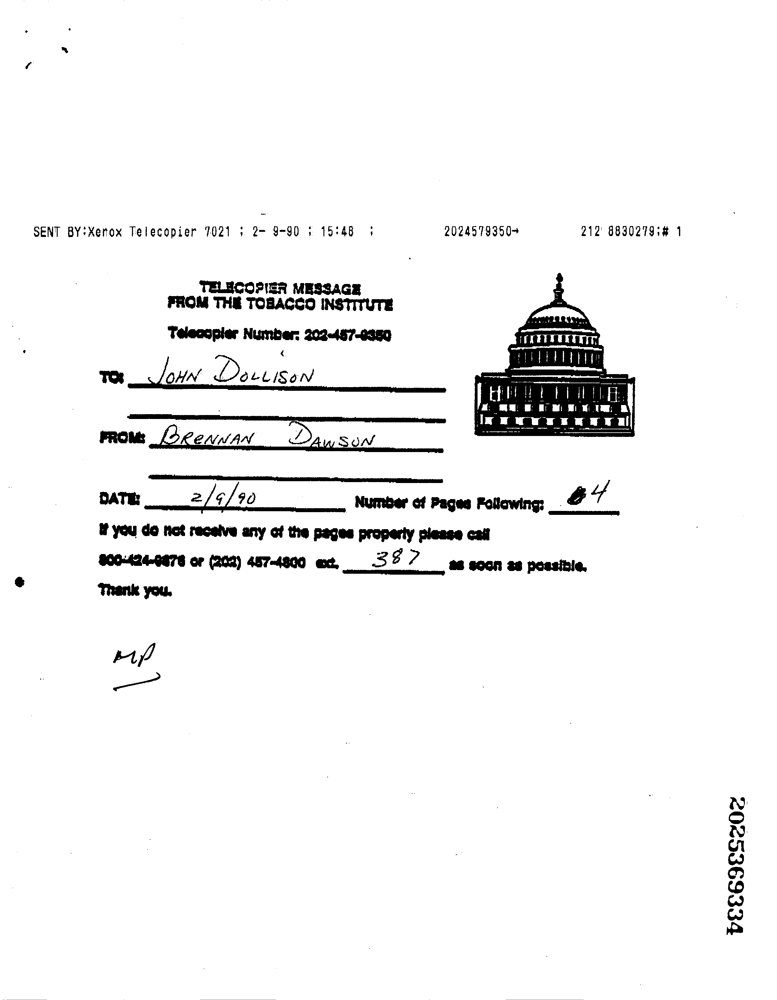 SENT BY:Xerox Telecopier 7021 ; 2- 9-90 ; 15:48 ; 2024579350→ 212 8830279;# 1
TELECOPIER MESSAGE
FROM THE TOBACCO INSTITUTE
Telecopier Number: 202-457-9350
TO: JOHN DOLLISON
FROM: BRENNAN DAWSON
DATE: 2/9/90 Number of Pages Following: 4
If you do not receive any of the pages properly please call
800-424-9876 or (202) 457-4800 ext. 387 as soon as possible.
Thank you.
MP
2025369334